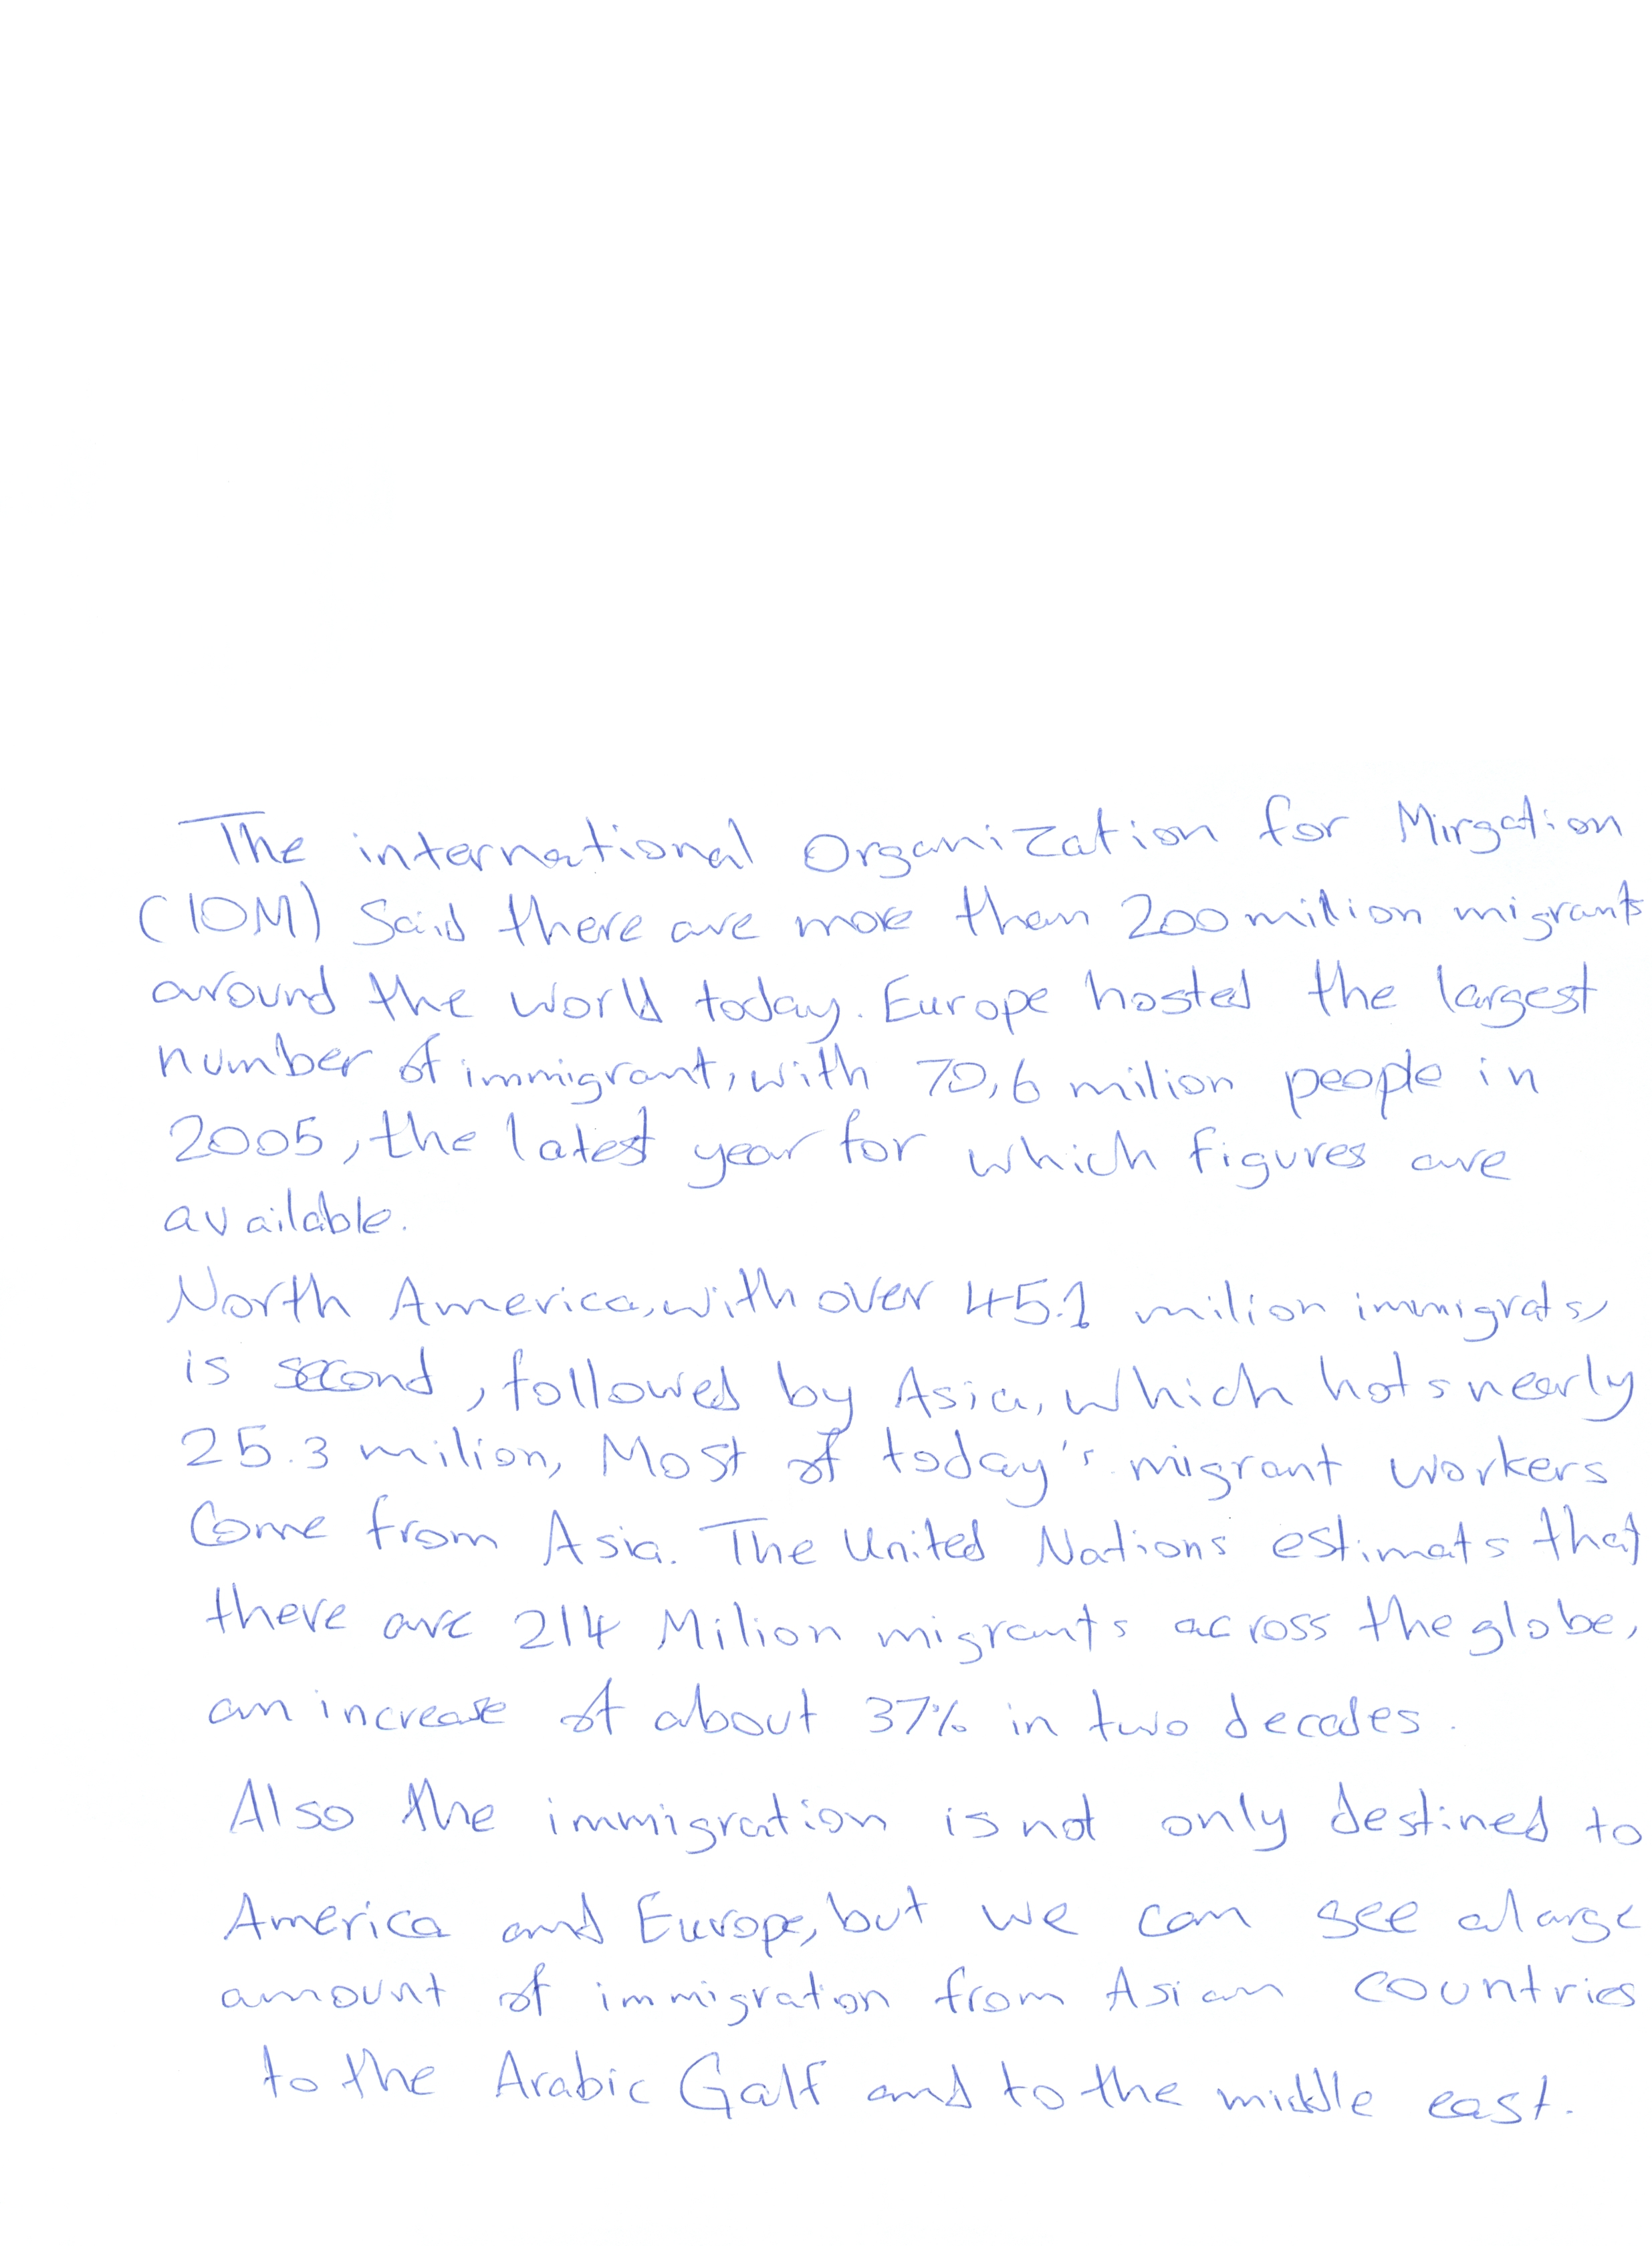 The international Organization for Mirgation
(IOM) Said there are more than 200 milion migrants
around the world today. Europe hosted the largest
number of immigrant, with 70,6 milion people in
2005, the latest year for which figures are
available.
North America, with over 45.1 milion immigrats,
is second, followed by Asia, which hots nearly
25.3 milion, Most of today's migrant workers
Come from Asia. The United Nations estimats that
there are 214 Milion migrants across the globe,
an increase of about 37% in two decades.
Also the immigration is not only destined to
America and Europe, but we can see a large
amount of immigration from Asian countries
to the Arabic Galf and to the middle east.